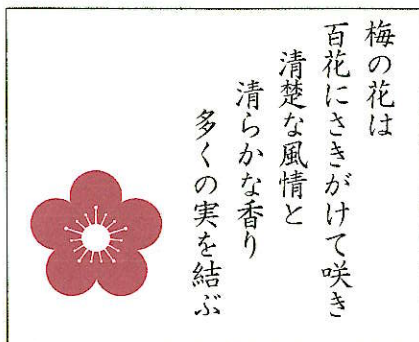 梅の花は
百花にさきがけて咲き
清楚な風情と
清らかな香り
多くの実を結ぶ